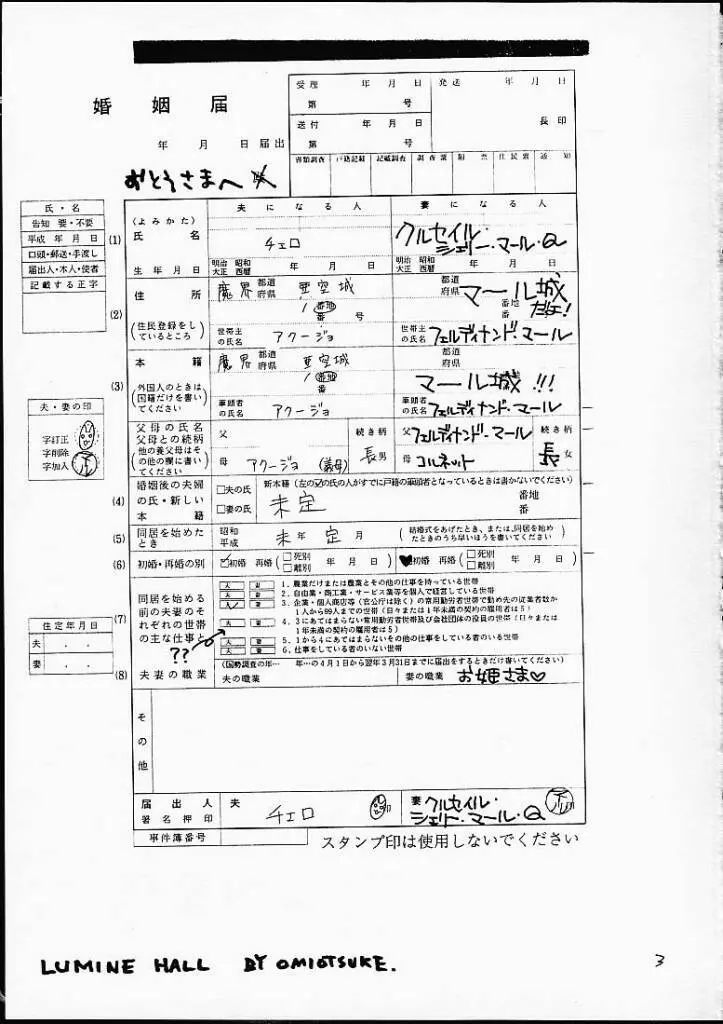 婚姻届
年 月 日 届出
受理 年 月 日
第 号
発送 年 月 日
送付 年 月 日
第 号
長印
書類調査 戸籍記載 記載調査 調査票 附票 住民票 通知
おとうさまへ
氏・名
告知 要・不要
平成 年 月 日
口頭・郵送・手渡し
届出人・本人・使者
記載する正字
夫になる人 妻になる人
(1)
(よみかた)
氏名
チェロ
クルセイル・
シェリー・マール・Q
生年月日
明治 昭和
大正 西暦
年 月 日
明治 昭和
大正 西暦
年 月 日
(2)
住所
魔界 都道府県 亜空城
1 番地
番 号
都道府県 マール城
番地
番 号
だよ!
(住民登録をしているところ)
世帯主の氏名 アクージョ
世帯主の氏名 フェルディナンド・マール
(3)
本籍
魔界 都道府県 亜空城
1 番地
番
都道府県
マール城!!!
外国人のときは国籍だけを書いてください
筆頭者の氏名 アクージョ
筆頭者の氏名 フェルディナンド・マール
夫・妻の印
字訂正
字削除
字加入
父母の氏名
父母との続柄
他の養父母はその他の欄に書いてください
父 続き柄
母 アクージョ (義母) 長男
父 フェルディナンド・マール 続き柄
母 コルネット 長女
(4)
婚姻後の夫婦の氏・新しい本籍
□夫の氏
□妻の氏
新本籍(左の☑の氏の人がすでに戸籍の筆頭者となっているときは書かないでください)
未定
番地
番
(5)
同居を始めたとき
昭和
平成 未年 定月
(結婚式をあげたとき、または、同居を始めたときのうち早いほうを書いてください)
(6)
初婚・再婚の別
初婚 再婚(□死別 □離別 年 月 日)
♥初婚 再婚(□死別 □離別 年 月 日)
(7)
同居を始める前の夫妻のそれぞれの世帯の主な仕事と
??
夫 妻 1. 農業だけまたは農業とその他の仕事を持っている世帯
夫 妻 2. 自由業・商工業・サービス業等を個人で経営している世帯
夫 妻 3. 企業・個人商店等(官公庁は除く)の常用勤労者世帯で勤め先の従業者数が1人から99人までの世帯(日々または1年未満の契約の雇用者は5)
夫 妻 4. 3にあてはまらない常用勤労者世帯及び会社団体の役員の世帯(日々または1年未満の契約の雇用者は5)
夫 妻 5. 1から4にあてはまらないその他の仕事をしている者のいる世帯
夫 妻 6. 仕事をしている者のいない世帯
住定年月日
夫 ・ ・
妻 ・ ・
(8)
夫妻の職業
(国勢調査の年… 年…の4月1日から翌年3月31日までに届出をするときだけ書いてください)
夫の職業
妻の職業 お姫さま♡
その他
届出人
署名押印
夫 チェロ 印
妻 クルセイル・
シェリー・マール・Q 印
事件簿番号
スタンプ印は使用しないでください
LUMINE HALL BY OMIOTSUKE.
3